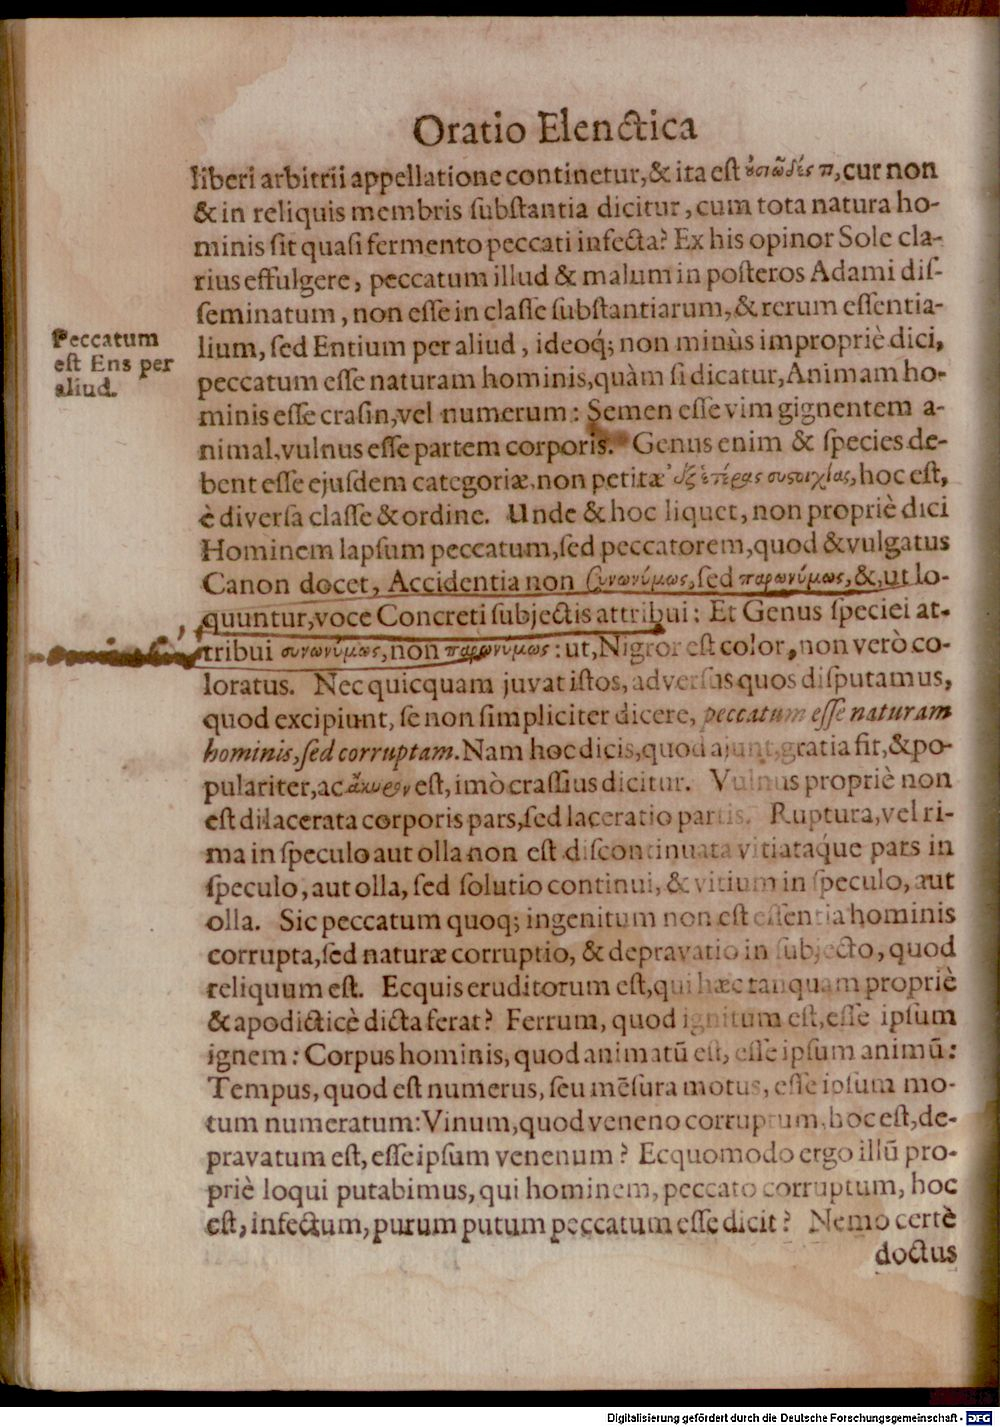 Oratio Elenctica
liberi arbitrii appellatione continetur, & ita est ὀσιῶδές π, cur non
& in reliquis membris ſubſtantia dicitur, cum tota natura ho-
minis ſit quaſi fermento peccati infecta? Ex his opinor Sole cla-
rius effulgere, peccatum illud & malum in poſteros Adami diſ-
ſeminatum, non eſſe in claſſe ſubſtantiarum, & rerum eſſentia-
Peccatum
eſt Ens per
aliud.
lium, ſed Entium per aliud, ideoq́; non minùs impropriè dici,
peccatum eſſe naturam hominis, quàm ſi dicatur, Animam ho-
minis eſſe craſin, vel numerum: Semen eſſe vim gignentem a-
nimal, vulnus eſſe partem corporis. Genus enim & ſpecies de-
bent eſſe ejuſdem categoriæ, non petitæ ἐξ ἑτέρας συστοιχίας, hoc eſt,
è diverſa claſſe & ordine. Unde & hoc liquet, non propriè dici
Hominem lapſum peccatum, ſed peccatorem, quod & vulgatus
Canon docet, Accidentia non συνωνύμως, ſed παρωνύμως, &, ut lo-
quuntur, voce Concreti ſubjectis attribui: Et Genus ſpeciei at-
tribui συνωνύμως, non παρωνύμως: ut, Nigror eſt color, non verò co-
loratus. Nec quicquam juvat iſtos, adverſus quos diſputamus,
quod excipiunt, ſe non ſimpliciter dicere, peccatum eſſe naturam
hominis, ſed corruptam. Nam hoc dicis, quod ajunt, gratia fit, & po-
pulariter, ac ἄκυρον eſt, imò craſſius dicitur. Vulnus propriè non
eſt dilacerata corporis pars, ſed laceratio partis. Ruptura, vel ri-
ma in ſpeculo aut olla non eſt diſcontinuata vitiatáque pars in
ſpeculo, aut olla, ſed ſolutio continui, & vitium in ſpeculo, aut
olla. Sic peccatum quoq; ingenitum non eſt eſſentia hominis
corrupta, ſed naturæ corruptio, & depravatio in ſubjecto, quod
reliquum eſt. Ecquis eruditorum eſt, qui hæc tanquam propriè
& apodicticè dicta ferat? Ferrum, quod ignitum eſt, eſſe ipſum
ignem: Corpus hominis, quod animatū eſt, eſſe ipſum animū:
Tempus, quod eſt numerus, ſeu mēſura motus, eſſe ipſum mo-
tum numeratum: Vinum, quod veneno corruptum, hoc eſt, de-
pravatum eſt, eſſe ipſum venenum? Ecquomodo ergo illū pro-
priè loqui putabimus, qui hominem, peccato corruptum, hoc
eſt, infectum, purum putum peccatum eſſe dicit? Nemo certè
doctus
Digitalisierung gefördert durch die Deutsche Forschungsgemeinschaft - DFG